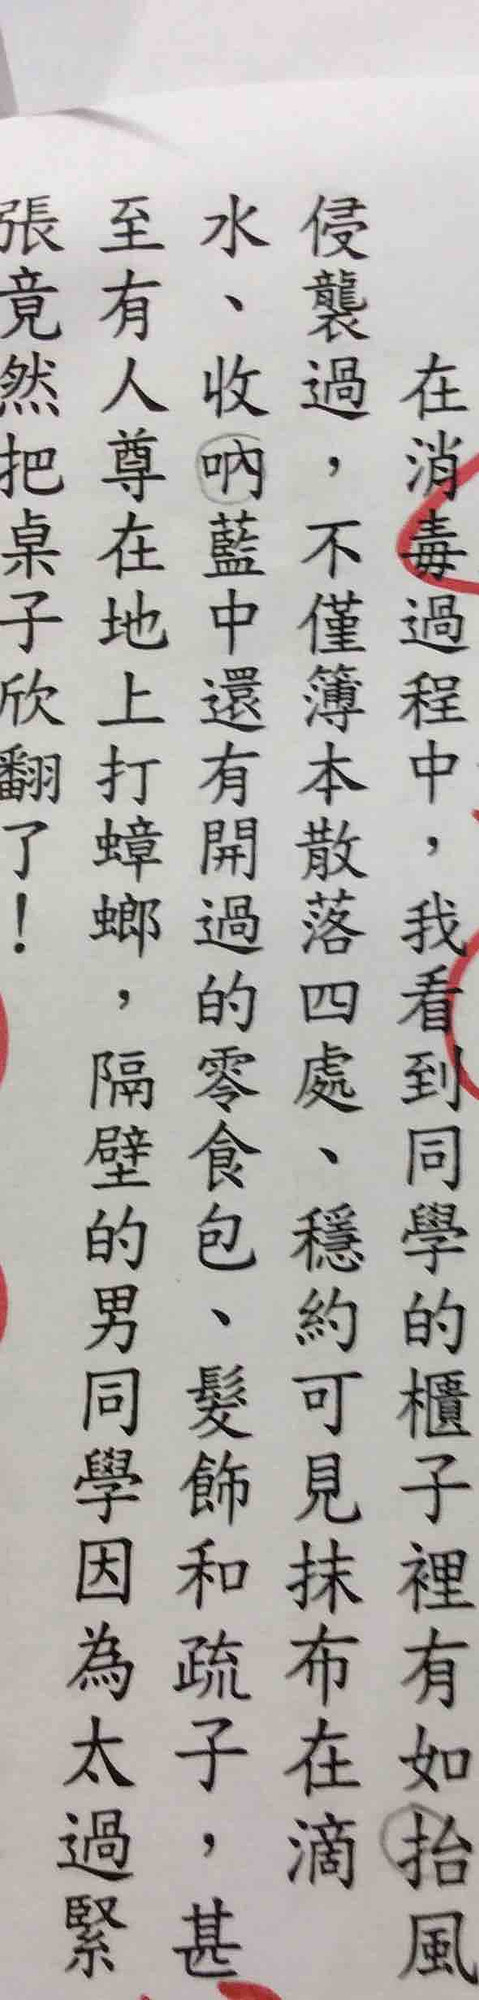 在消毒過程中，我看到同學的櫃子裡有如抬風
侵襲過，不僅簿本散落四處、穩約可見抹布在滴
水、收吶藍中還有開過的零食包、髮飾和疏子，甚
至有人尊在地上打蟑螂，隔壁的男同學因為太過緊
張竟然把桌子欣翻了！